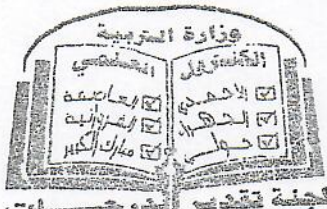 وزارة التربية
التعليمي
الأحمدي
الجهراء
حولي
العاصمة
الفروانية
مبارك الكبير
لجنة